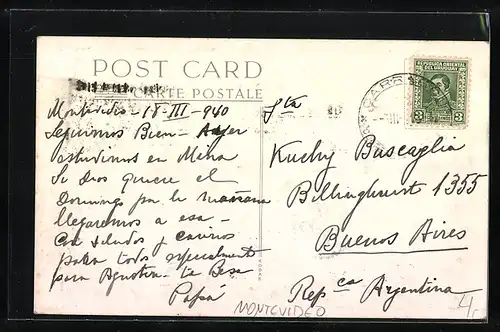 POST CARD
CARTE POSTALE
REPUBLICA ORIENTAL
DEL URUGUAY
3 3
CARRAS
Montevideo - 18-III-940
Seguimos Bien - Ayer
estuvimos en Misa
Si Dios quiere el
Domingo por la mañana
llegaremos a esa -
Con saludos y cariños
para todos especialmente
para Agustin te Besa
Papá
Sta
Kuchy Buscaglia
Billinghurst 1355
Buenos Aires
Repca Argentina
MONTEVIDEO